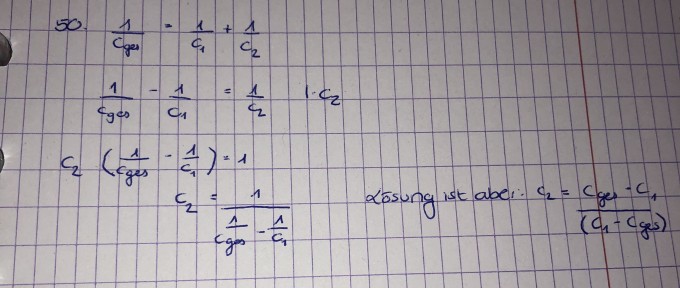 50. 1/Cges = 1/C1 + 1/C2
1/Cges - 1/C1 = 1/C2 |·C2
C2 (1/Cges - 1/C1) = 1
C2 = 1/(1/Cges - 1/C1) Lösung ist aber: C2 = Cges·C1/(C1 - Cges)